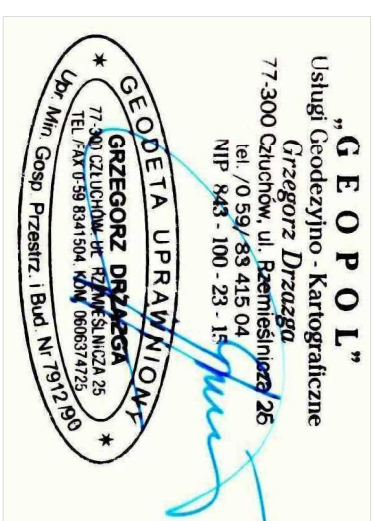 „GEOPOL”
Usługi Geodezyjno - Kartograficzne
Grzegorz Drzazga
77-300 Człuchów, ul. Rzemieślnicza 26
tel. /0 59/ 83 415 04
NIP 843 - 100 - 23 - 15
* GEODETA UPRAWNIONY *
GRZEGORZ DRZAZGA
77-300 CZŁUCHÓW UL. RZEMIEŚLNICZA 25
TEL /FAX 0-59 8341504, KOM. 0606374725
Upr. Min. Gosp. Przestrz. i Bud. Nr 7912/90